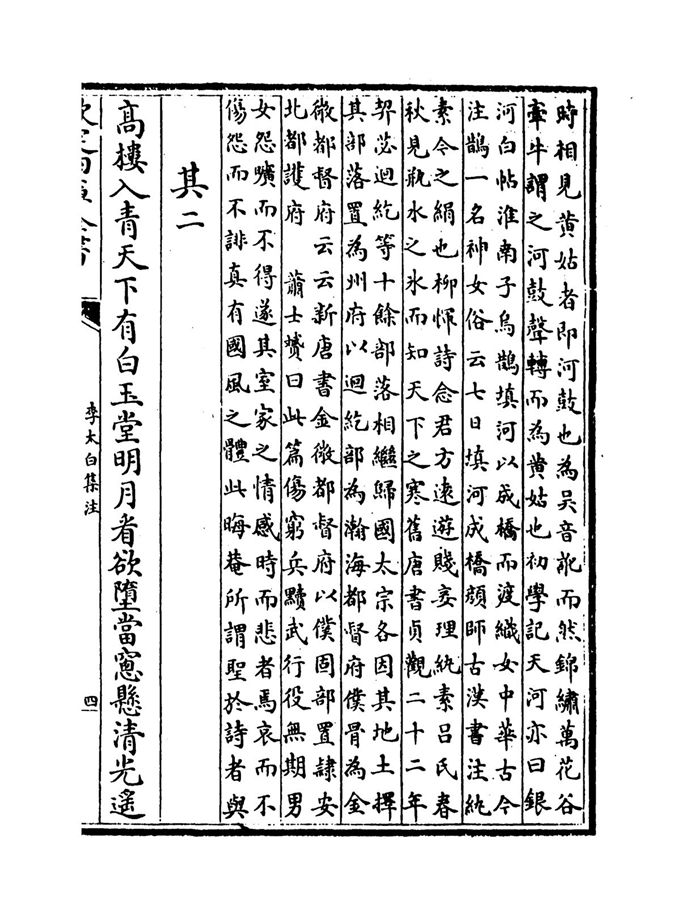 時相見黄姑者即河鼓也為吴音訛而然錦繡萬花谷
牽牛謂之河鼓聲轉而為黄姑也初學記天河亦曰銀
河白帖淮南子烏鵲填河以成橋而渡織女中華古今
注鵲一名神女俗云七日填河成橋顔師古漢書注紈
素今之絹也柳惲詩念君方逺遊賤妾理紈素吕氏春
秋見瓶水之氷而知天下之寒舊唐書貞觀二十二年
契苾迴紇等十餘部落相繼歸國太宗各因其地土擇
其部落置為州府以迴紇部為瀚海都督府僕骨為金
微都督府云云新唐書金微都督府以僕固部置隸安
北都護府　蕭士贇曰此篇傷窮兵黷武行役無期男
女怨曠而不得遂其室家之情感時而悲者焉哀而不
傷怨而不誹真有國風之體此晦庵所謂聖於詩者與
其二
髙樓入青天下有白玉堂明月看欲墮當窻懸清光遥
李太白集注
四